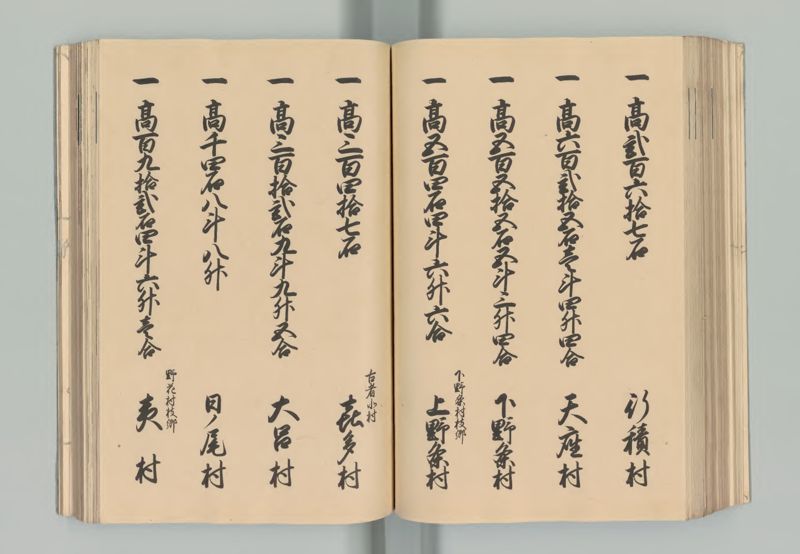 一 高貳百六拾七石 行積村
一 高六百貳拾五石壱斗四升四合 天座村
一 高五百五拾五石五斗三升四合 下野条村
一 高五百四石四斗六升六合 下野条村枝郷 上野条村
一 高三百四拾七石 古者小村 喜多村
一 高三百拾貳石九斗九升五合 大呂村
一 高千四石八斗八升 日ノ尾村
一 高百九拾貳石四斗六升壱合 野花村枝郷 夷村